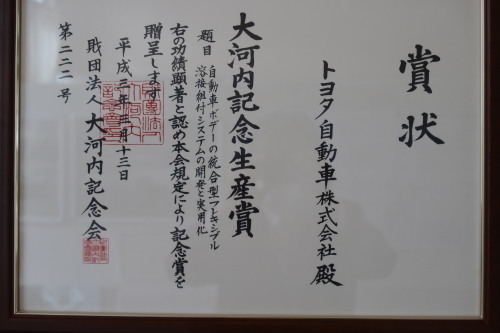 賞状
トヨタ自動車株式会社殿
大河内記念生産賞
題目 自動車ボデーの統合型フレキシブル
溶接組付システムの開発と実用化
右の功績顕著と認め本会規定により記念賞を
贈呈します
平成三年三月十三日
財団法人大河内記念会
第二二二号